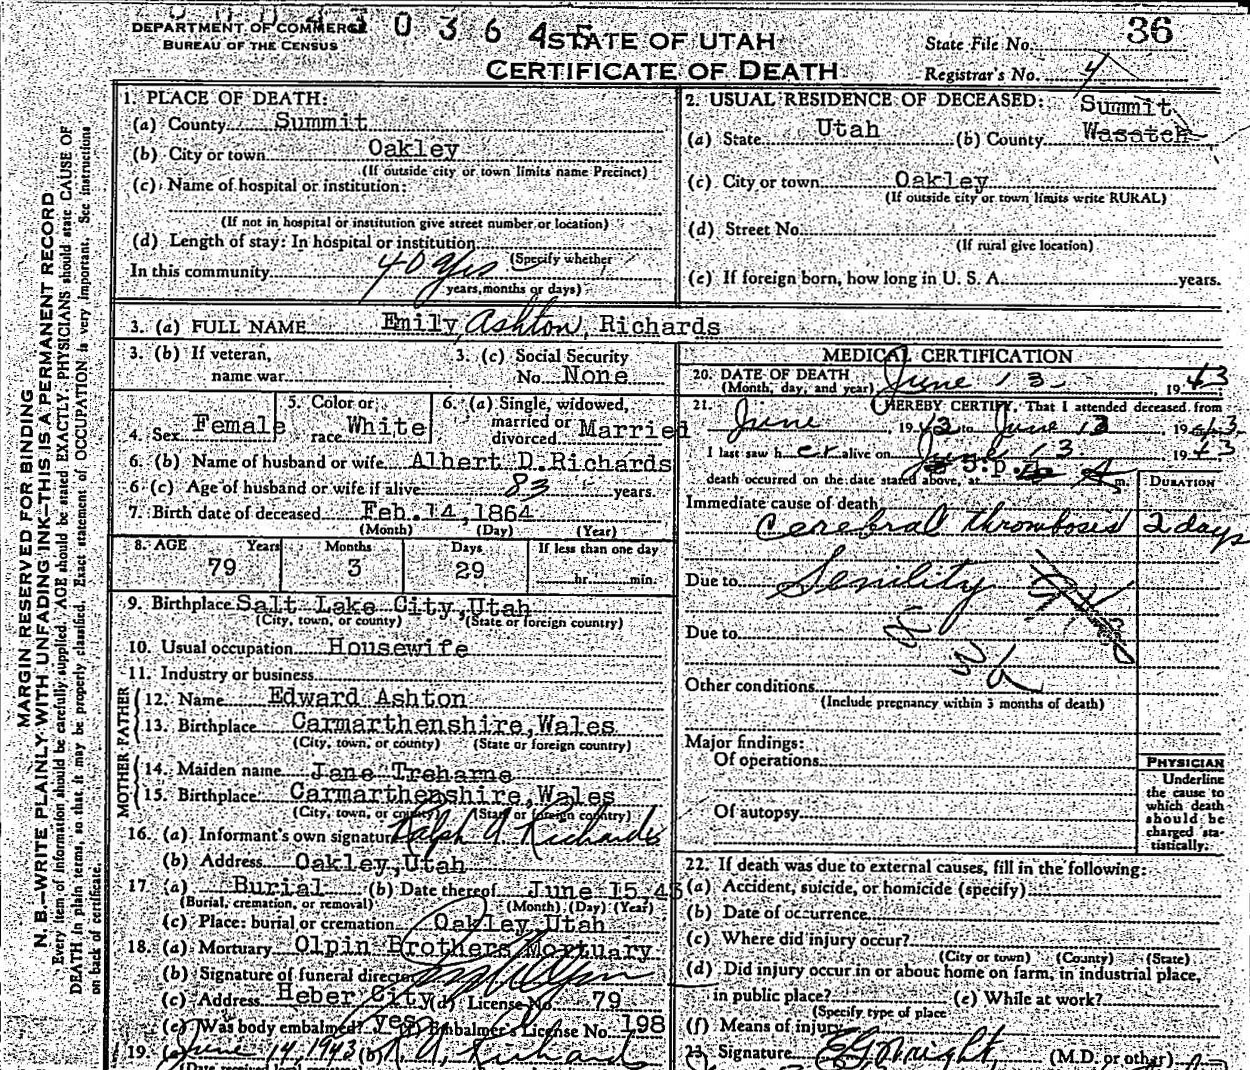 DEPARTMENT OF COMMERCE
BUREAU OF THE CENSUS
0 3 6 4 5
STATE OF UTAH
CERTIFICATE OF DEATH
36
State File No.
Registrar's No. 4
MARGIN RESERVED FOR BINDING
N. B.—WRITE PLAINLY WITH UNFADING INK—THIS IS A PERMANENT RECORD
Every item of information should be carefully supplied. AGE should be stated EXACTLY. PHYSICIANS should state CAUSE OF
DEATH in plain terms, so that it may be properly classified. Exact statement of OCCUPATION is very important. See instructions
on back of certificate.
1. PLACE OF DEATH:
(a) County Summit
(b) City or town Oakley
(If outside city or town limits name Precinct)
(c) Name of hospital or institution:
(If not in hospital or institution give street number or location)
(d) Length of stay: In hospital or institution
(Specify whether
In this community 40 yrs
years, months or days)
2. USUAL RESIDENCE OF DECEASED:
Summit
(a) State Utah (b) County Wasatch
(c) City or town Oakley
(If outside city or town limits write RURAL)
(d) Street No.
(If rural give location)
(e) If foreign born, how long in U. S. A. years.
3. (a) FULL NAME Emily Ashton Richards
3. (b) If veteran,
name war
3. (c) Social Security
No. None
4. Sex Female
5. Color or
race White
6. (a) Single, widowed,
married or
divorced Married
6. (b) Name of husband or wife Albert D. Richards
6 (c) Age of husband or wife if alive 83 years.
7. Birth date of deceased Feb. 14, 1864
(Month) (Day) (Year)
8. AGE Years Months Days If less than one day
79 3 29 hr. min.
9. Birthplace Salt Lake City, Utah
(City, town, or county) (State or foreign country)
10. Usual occupation Housewife
11. Industry or business
FATHER
12. Name Edward Ashton
13. Birthplace Carmarthenshire, Wales
(City, town, or county) (State or foreign country)
MOTHER
14. Maiden name Jane Treharne
15. Birthplace Carmarthenshire, Wales
(City, town, or county) (State or foreign country)
16. (a) Informant's own signature Ralph A Richards
(b) Address Oakley, Utah
17 (a) Burial (b) Date thereof June 15. 43
(Burial, cremation, or removal) (Month) (Day) (Year)
(c) Place: burial or cremation Oakley, Utah
18. (a) Mortuary Olpin Brothers Mortuary
(b) Signature of funeral director
(c) Address Heber City (d) License No. 79
(e) Was body embalmed? yes (f) Embalmer's License No. 198
19. (a) June 14, 1943 (b) R. A. Richards
MEDICAL CERTIFICATION
20. DATE OF DEATH
(Month, day, and year) June 13 1943
21. I HEREBY CERTIFY, That I attended deceased from
June, 1943 to June 13 1943
I last saw her alive on June 13 1943
death occurred on the date stated above, at 5. p. m.
DURATION
Immediate cause of death
Cerebral thrombosis 2 days
Due to Senility
Due to
Other conditions
(Include pregnancy within 3 months of death)
Major findings:
Of operations
Of autopsy
PHYSICIAN
Underline
the cause to
which death
should be
charged sta-
tistically:
22. If death was due to external causes, fill in the following:
(a) Accident, suicide, or homicide (specify)
(b) Date of occurrence
(c) Where did injury occur?
(City or town) (County) (State)
(d) Did injury occur in or about home on farm, in industrial place,
in public place? (e) While at work?
(Specify type of place
(f) Means of injury
23. Signature E G Wright (M.D. or other)